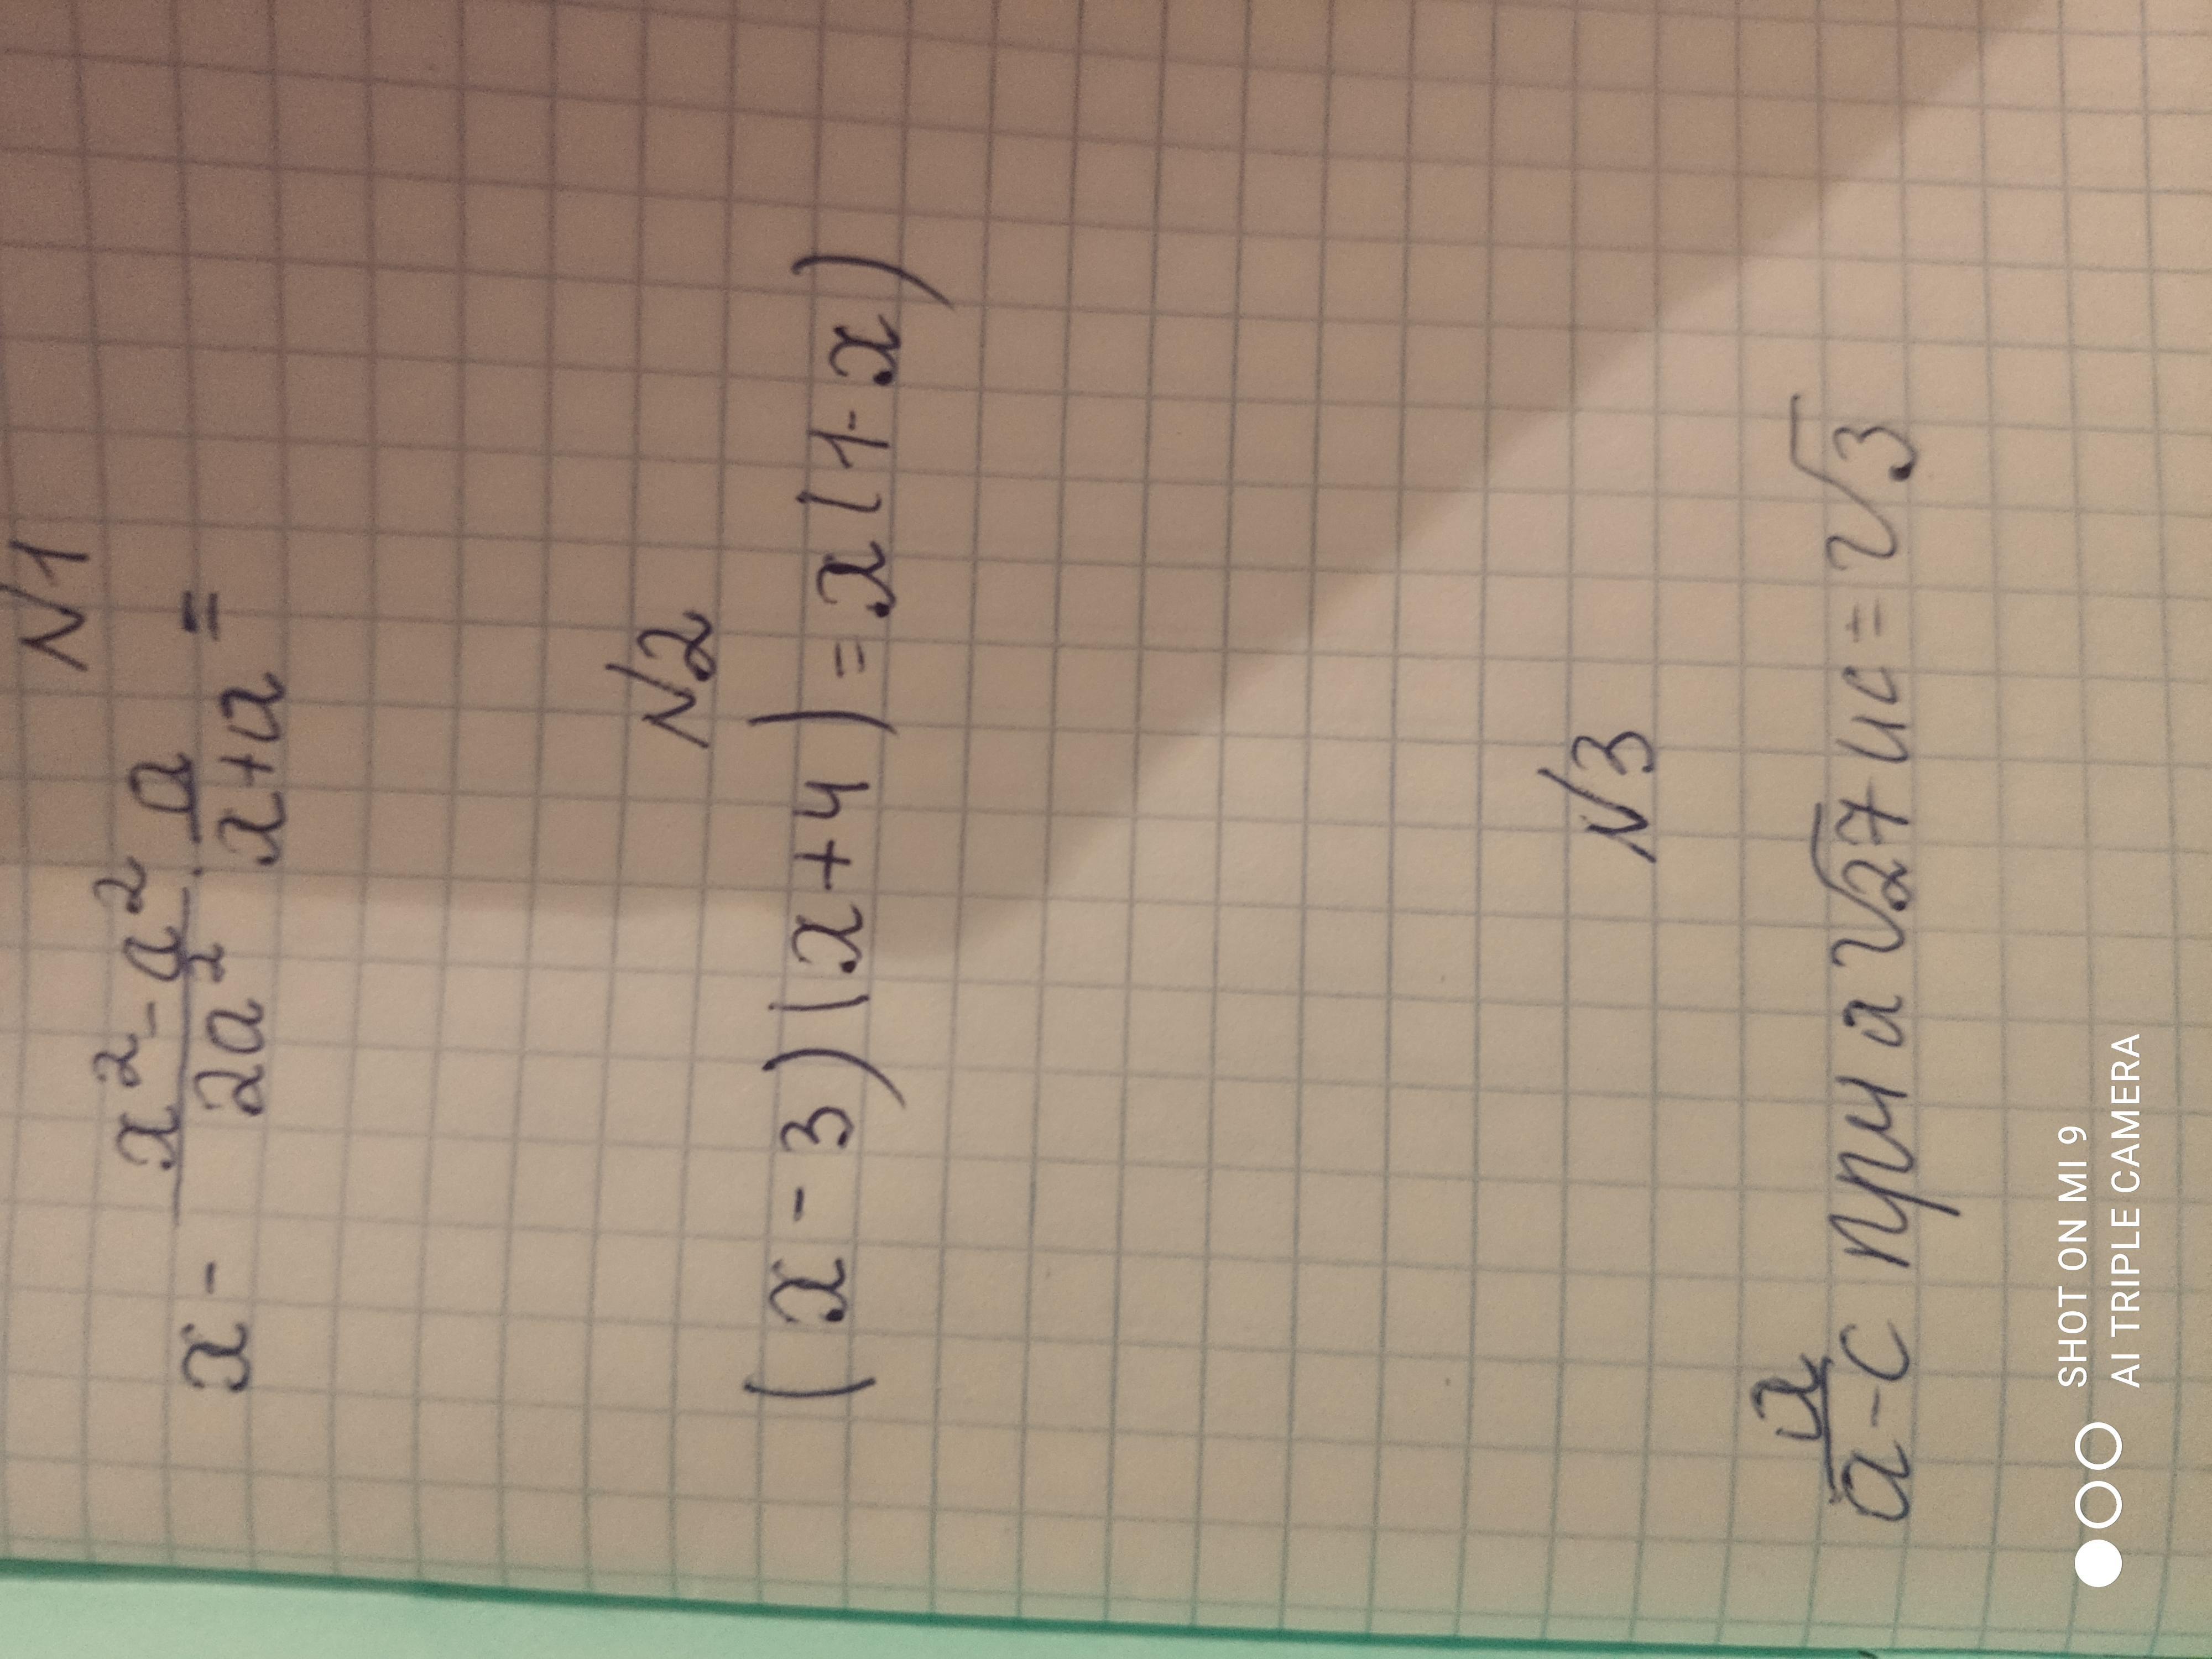 N1
x - \frac{x^2 - a^2}{2a^2} \cdot \frac{a}{x+a} =
N2
(x - 3)(x + 4) = x(1 - x)
N3
\frac{a}{a-c} при a √27 и c = √3
SHOT ON MI 9
AI TRIPLE CAMERA